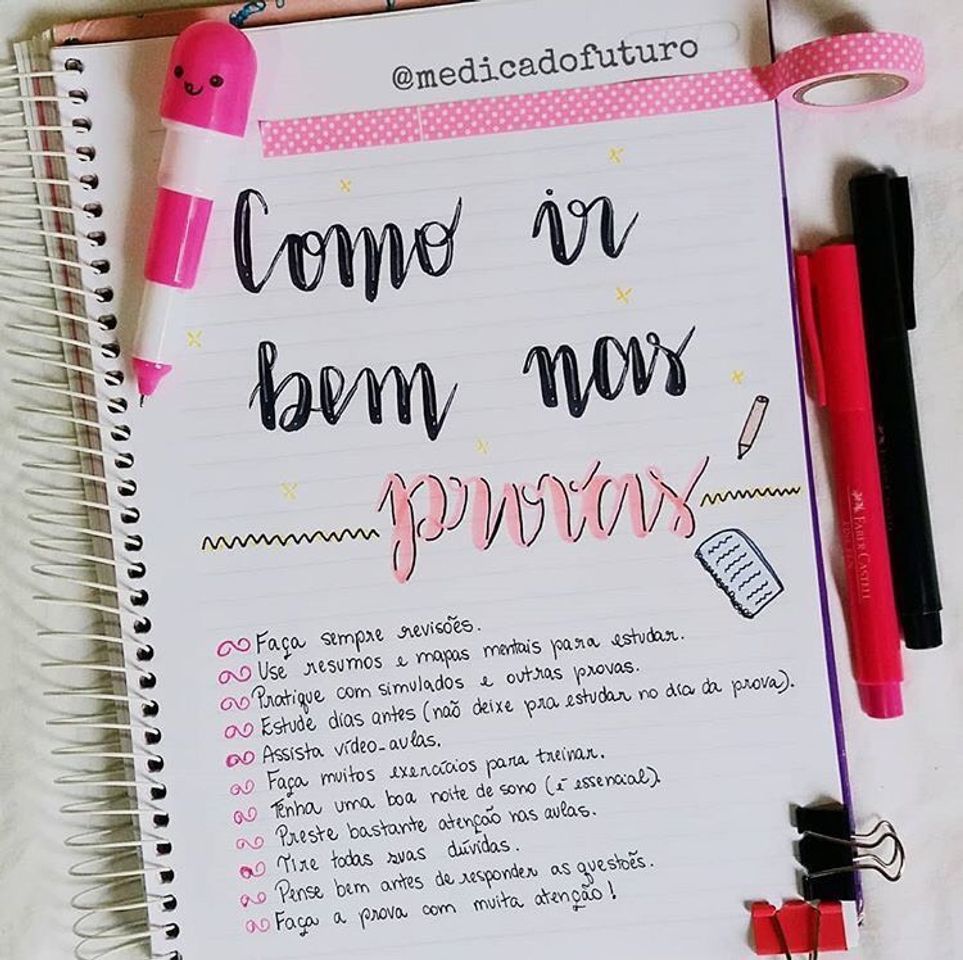 @medicadofuturo
Como ir
bem nas
provas
Faça sempre revisões.
Use resumos e mapas mentais para estudar.
Pratique com simulados e outras provas.
Estude dias antes (não deixe pra estudar no dia da prova).
Assista vídeo-aulas.
Faça muitos exercícios para treinar.
Tenha uma boa noite de sono (é essencial).
Preste bastante atenção nas aulas.
Tire todas suas dúvidas.
Pense bem antes de responder as questões.
Faça a prova com muita atenção!
FABER-CASTELL